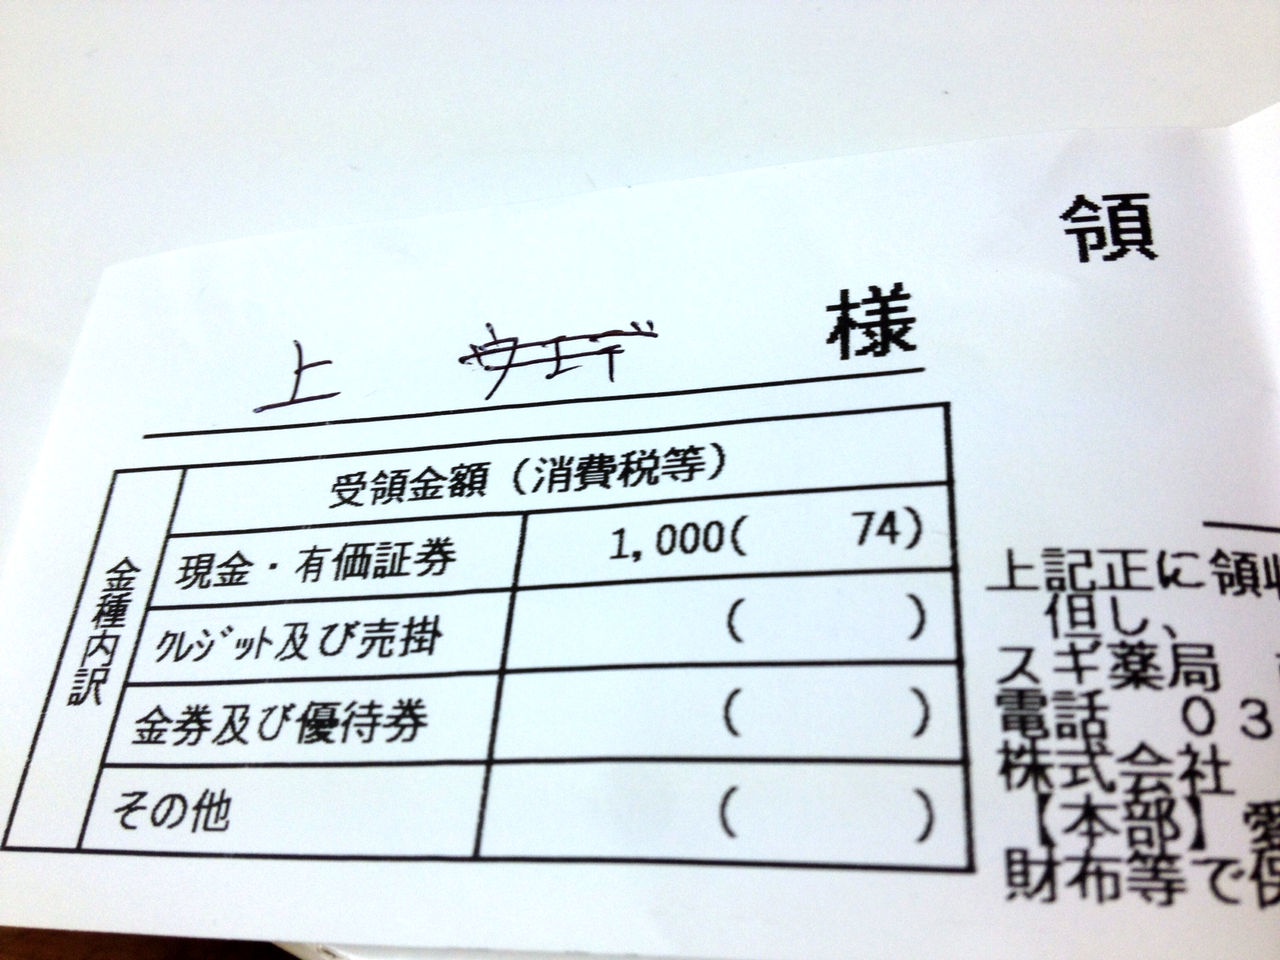 領
上 ウエデ 様
受領金額（消費税等）
金種内訳
現金・有価証券 1,000( 74)
ｸﾚｼﾞｯﾄ及び売掛 ( )
金券及び優待券 ( )
その他 ( )
上記正に領収
但し、
スギ薬局
電話 ０３
株式会社
【本部】愛
財布等で保